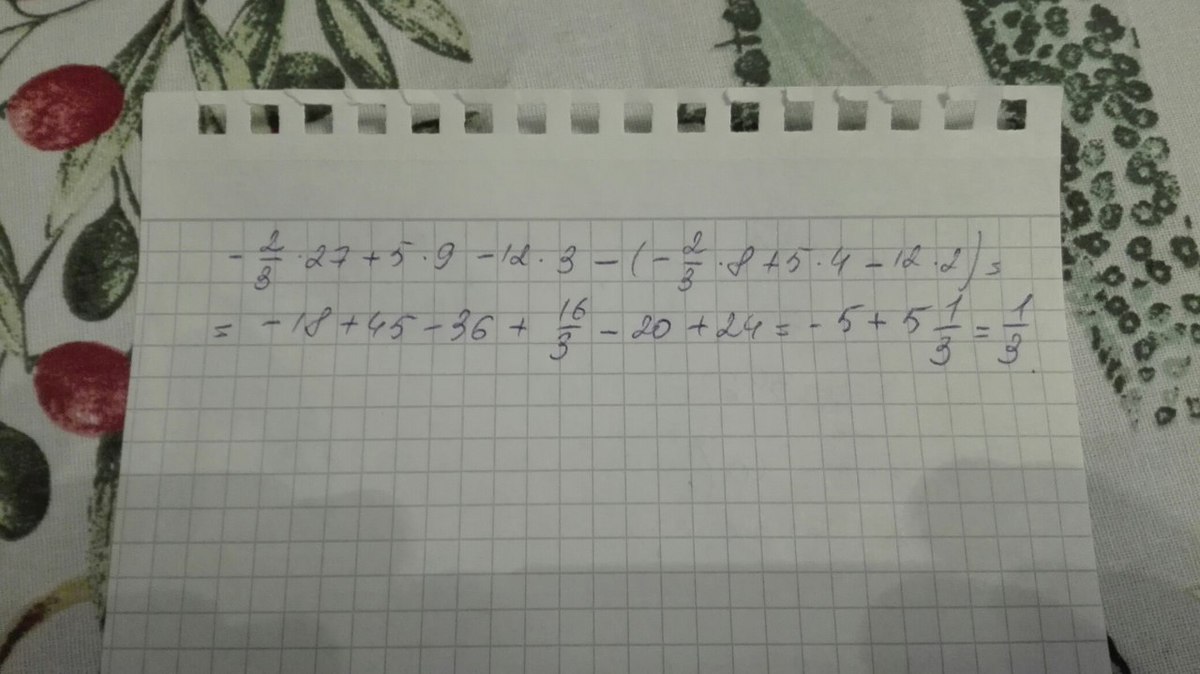 -2/3·27+5·9-12·3-(-2/3·8+5·4-12·2)=
=-18+45-36+16/3-20+24=-5+5 1/3=1/3.